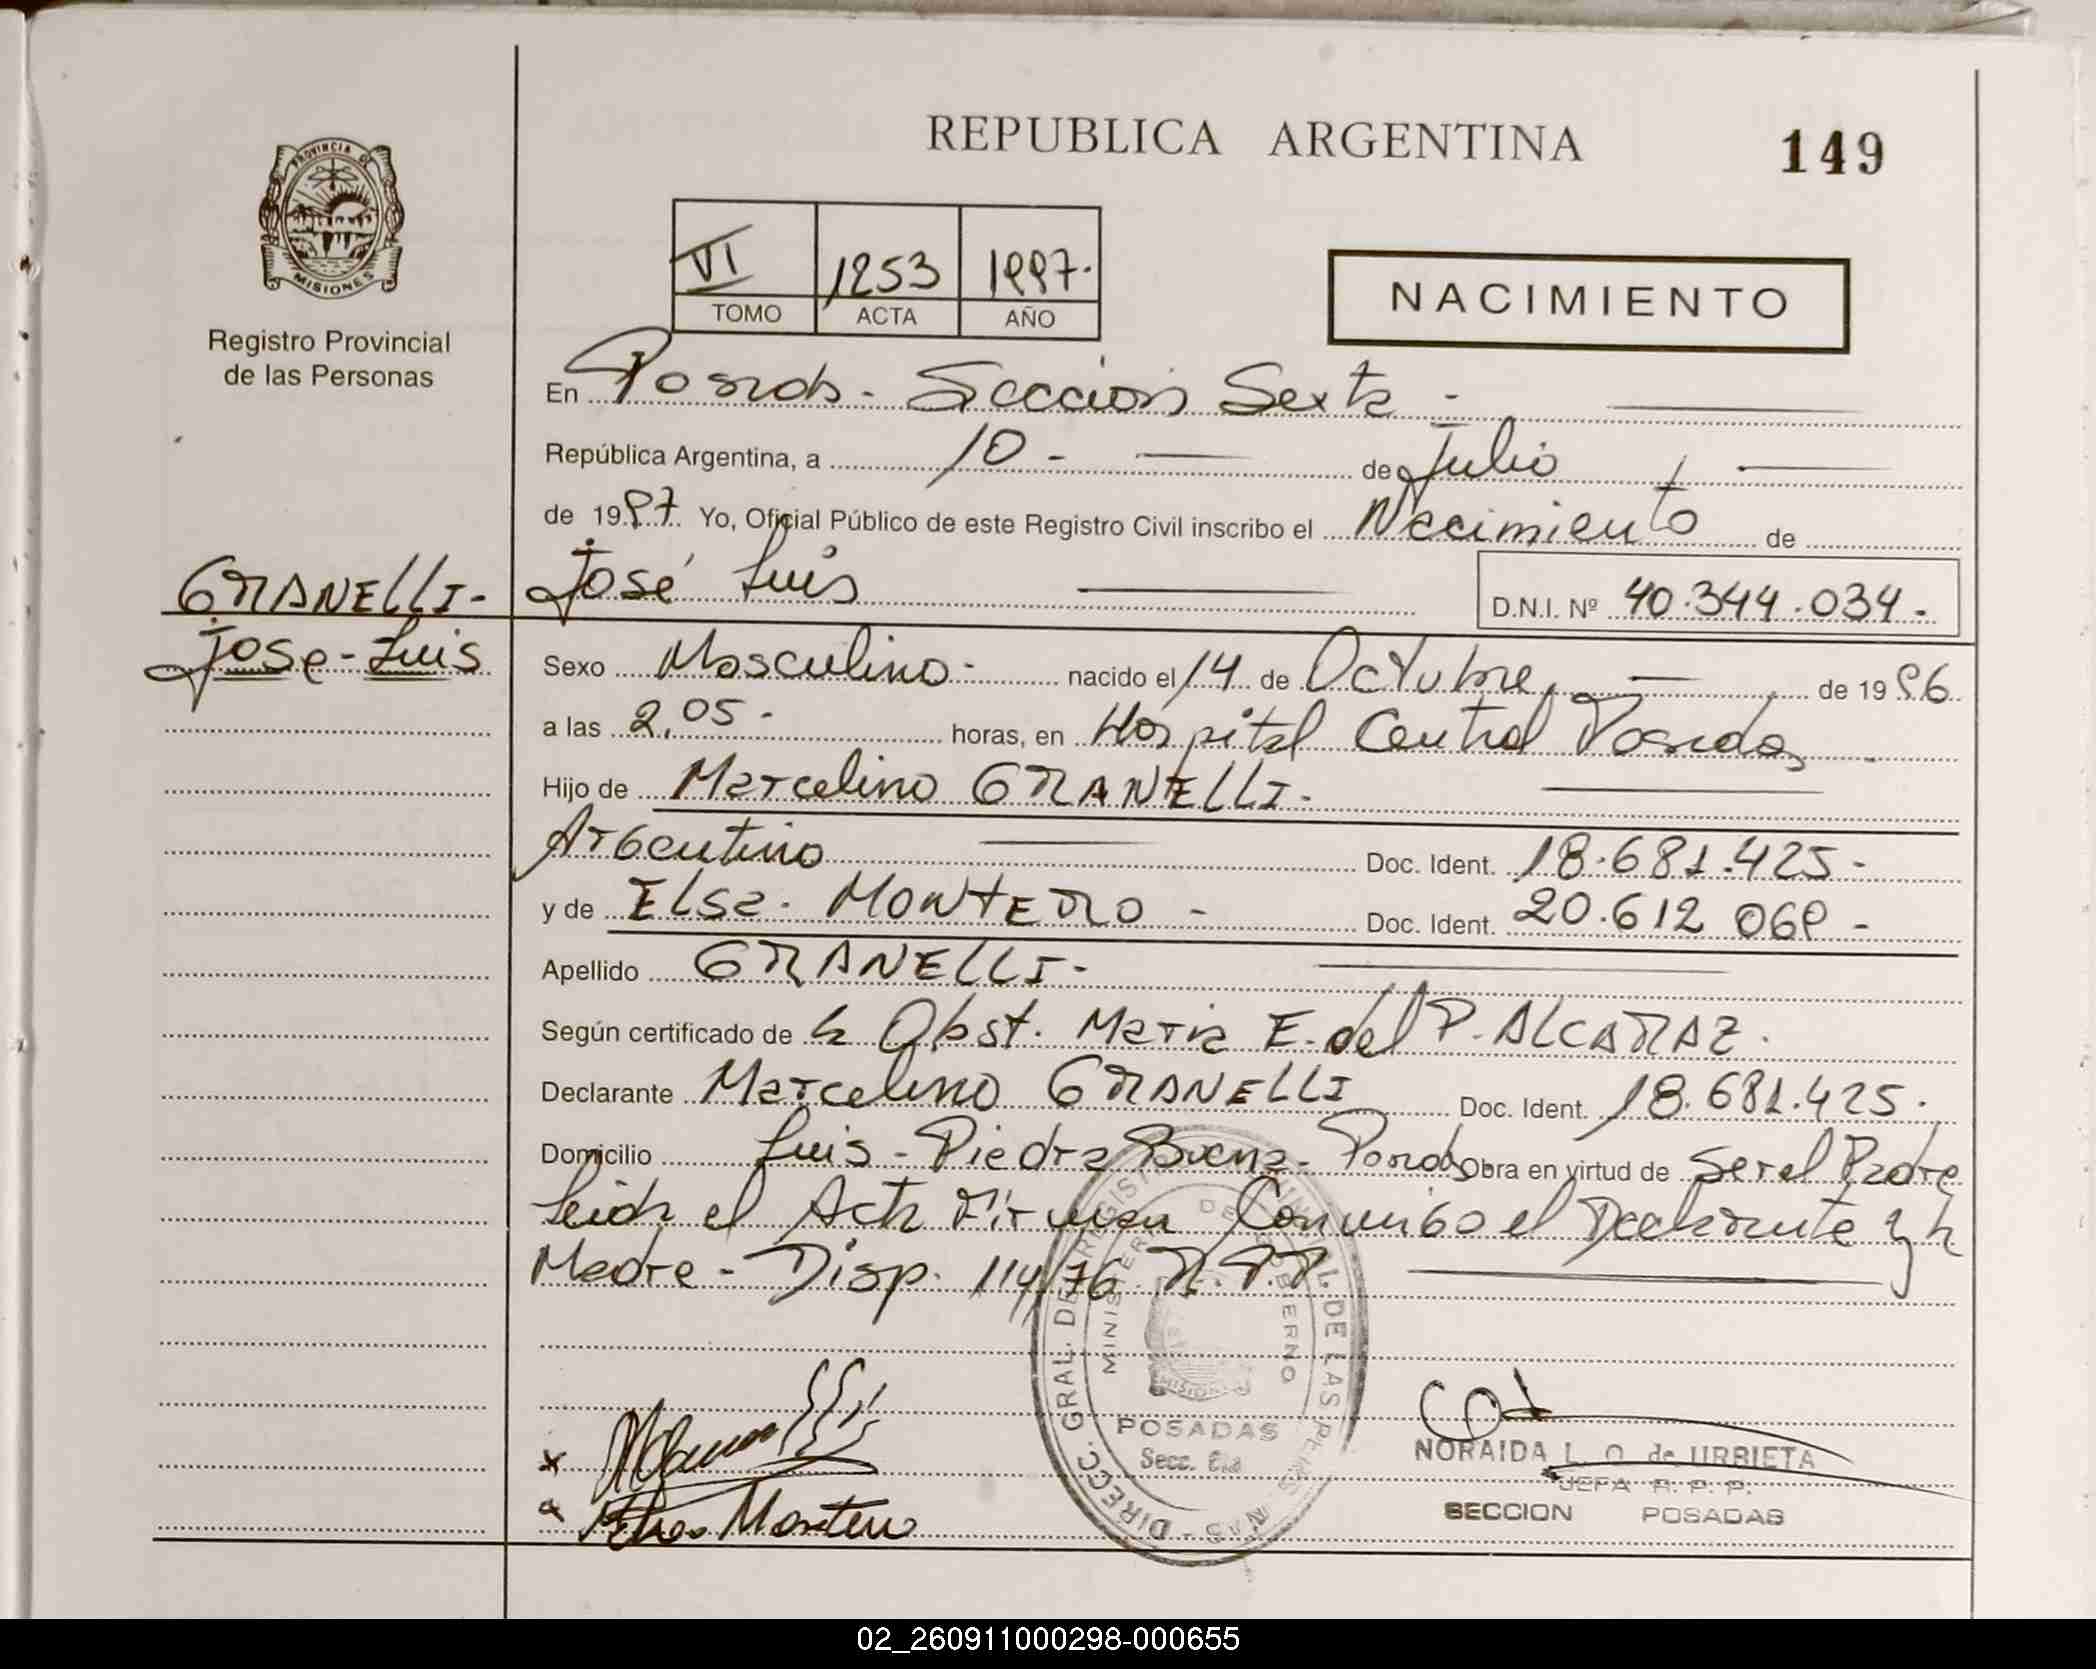 REPUBLICA ARGENTINA
149
PROVINCIA DE
MISIONES
Registro Provincial
de las Personas
VI 1253 1997.
TOMO ACTA AÑO
NACIMIENTO
En Posadas - Sección Sexta -
República Argentina, a 10 - de Julio
de 1997 Yo, Oficial Público de este Registro Civil inscribo el Nacimiento de
GRANELLI -
José Luis
D.N.I. Nº 40.344.034 -
Jose - Luis
Sexo Masculino - nacido el 14 de Octubre, de 1996
a las 2,05 - horas, en Hospital Central Posadas
Hijo de Marcelino GRANELLI -
Argentino Doc. Ident. 18.681.425 -
y de Elsa. MONTERO - Doc. Ident. 20.612 069 -
Apellido GRANELLI -
Según certificado de la Obst. Maria E. del P. ALCARAZ.
Declarante Marcelino GRANELLI Doc. Ident. 18.681.425.
Domicilio Luis - Piedra Buena - Posadas Obra en virtud de Ser el Padre
leida el Acta Firman Conmigo el Declarante y la
Madre - Disp. 114/76 R.P.P.
DIRECC. GRAL. DE REGISTRO PROVINCIAL DE LAS PERSONAS
MINISTERIO DE GOBIERNO
MISIONES
POSADAS
Secc. 6ta
x
Montero
NORAIDA L. O. de URBIETA
JEFA R. P. P.
SECCION POSADAS
02_260911000298-000655